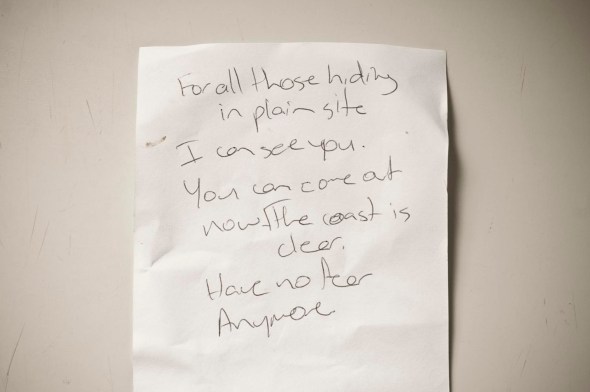 For all those hiding
in plain site
I can see you.
You can come out
now. The coast is
clear.
Have no fear
Anymore.